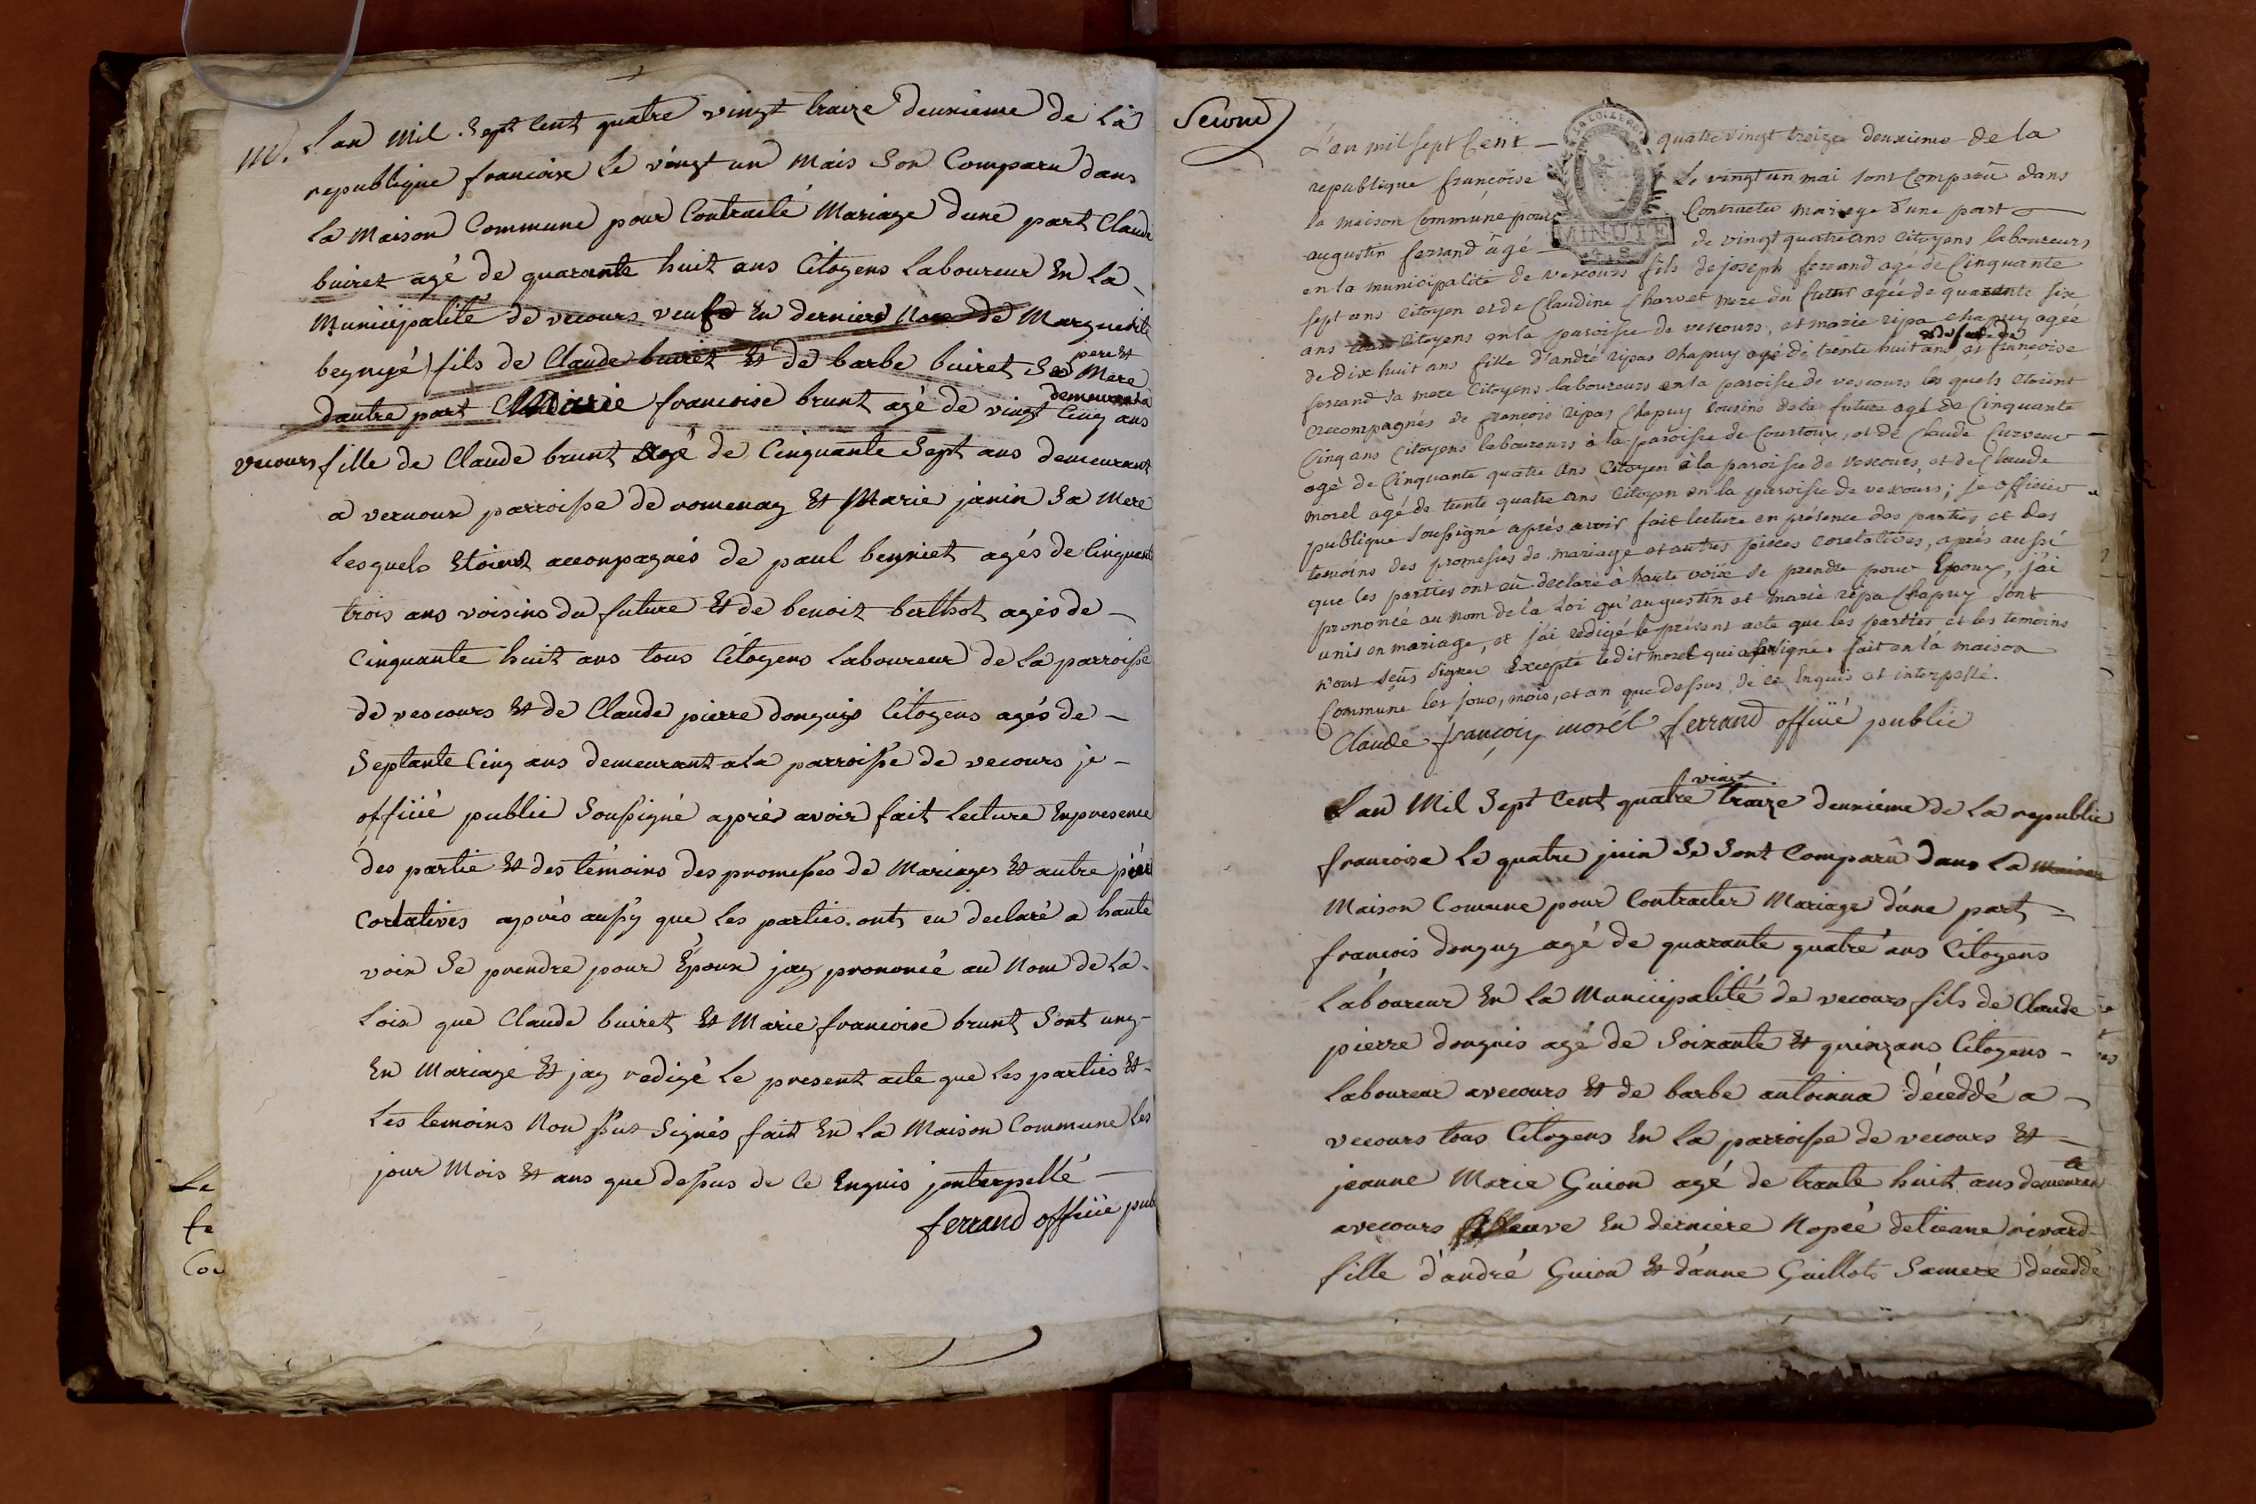 M. L'an Mil Sept Cent quatre vingt traize deuxieme de La
republique francoise Le vingt un Mais Son Comparu dans
La Maison Commune pour Contracté Mariage dune part Claude
buiret agé de quarante huit ans Citoyens Laboureur En La
Municipalité de vecours veufe En derniere Nore de Marguerite
fils de Claude buiret Et de barbe buiret Ses pere Et Mere
dautre part Marie francoise brunt agé de vingt Cinq ans demeurant a
vecours fille de Claude brunt agé de Cinquante Sept ans demeurant
a vernoux parroisse de romenay Et Marie janin Sa Mere
Lesquels Etoient accompagnés de paul beyniet agés de Cinquante
trois ans voisins du future Et de benoit berthot agés de
Cinquante huit ans tous Citoyens Laboureur de La parroisse
de vescours Et de Claude pierre donguis Citoyens agés de
Septante Cinq ans demeurant a La parroisse de vecours je
officié public Soussigné aprés avoir fait Lecture En presence
des partie Et des témoins des promesses de Mariages Et autre
Corlatives aprés aussy que Les parties onts eu declaré a haute
voix Se prendre pour Époux jay prononcé au Nom de La
Loix que Claude buiret Et Marie francoise brunt Sont uny
En Mariage Et jay redigé Le present acte que Les parties Et
Les temoins Non sus Signés fait En La Maison Commune Les
jour Mois Et ans que dessus de Ce Enquis jnterpellé
ferrand officié pub
Le
fe
Co
Second
L'an mil sept Cent quatre vingt treize deuxieme de la
republique françoise Le vingt un mai sont Comparû dans
la maison Commune pour Contracter mariage d'une part
MINUTE
augustin ferrand âgé de vingt quatre ans Citoyens laboureurs
en la municipalité de vescours fils de joseph ferrand agé de Cinquante
sept ans Citoyen et de Claudine Charvet mere du futur agée de quarante six
ans Citoyens en la paroisse de vescours, et marie ripa Chapuy agee
de dix huit ans fille d'andré ripas Chapuy agé de trente huit ans et françoise
ferrand sa mere Citoyens laboureurs en la paroisse de vescours les quels etoient
accompagnés de françois ripas Chapuy Cousins de la future agé de Cinquante
Cinq ans Citoyens laboureurs à la paroisse de Courtoux, et de Claude
agé de Cinquante quatre ans Citoyen à la paroisse de vescours, et de Claude
morel agé de trente quatre ans Citoyen en la paroisse de vescours; je officier
publique soussigné aprés avoir fait lecture en présence des parties et des
temoins des promesses de mariage et autres pieces corelatives, aprés aussi
que les parties ont eû declaré à haute voix se prendre pour Epoux, j'ai
prononcé au nom de la Loi qu'augustin et marie ripa Chapuy sont
unis en mariage, et j'ai redigé le présent acte que les parties et les temoins
n'ont seûs signer Excepté ledit morel qui a signé. fait en la maison
Commune les jour, mois, et an que dessus, de ce Enquis et interpellé.
Claude françois morel ferrand officié public
L'an Mil Sept Cent quatre vingt traize deuxiéme de La republic
francoise Le quatre juin Se Sont Comparû dans La Maison
Maison Comune pour Contracter Mariage d'une part
francois donguy agé de quarante quatre ans Citoyens
Laboureur En La Municipalité de vecours fils de Claude
pierre donguis agé de Soixante Et quinz ans Citoyens
Laboureur avecours Et de barbe antoinna déceddé a
vecours tous Citoyens En La parroisse de vecours Et
jeanne Marie Guion agé de trante huit ans demeurante
avecours veuve En derniere Nopeé detienne rivard
fille d'andré Guion Et d'anne Guillot Samere déceddé